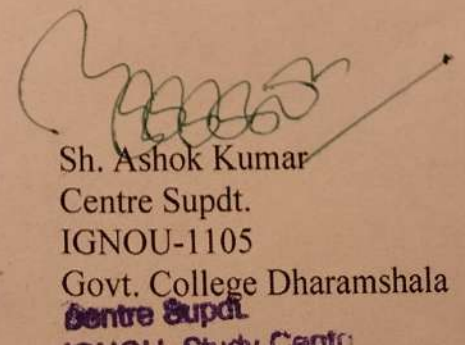 Sh. Ashok Kumar
Centre Supdt.
IGNOU-1105
Govt. College Dharamshala
Centre Supdt.
IGNOU Study Centr